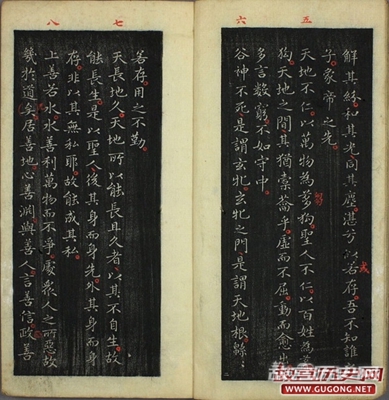 五
六
七
八
解其紛和其光同其塵湛兮以若存吾不知誰
或
子象帝之先
天地不仁以萬物為芻狗聖人不仁以百姓為芻
狗天地之間其猶橐籥乎虛而不屈動而愈出
多言數窮不如守中
谷神不死是謂玄牝玄牝之門是謂天地根綿〻
若存用之不勤
天長地久天地所以能長且久者以其不自生故
能長生是以聖人後其身而身先外其身而身
存非以其無私耶故能成其私
上善若水水善利萬物而不爭處衆人之所惡故
幾於道矣居善地心善淵與善人言善信政善
WWW.GUGONG.NET